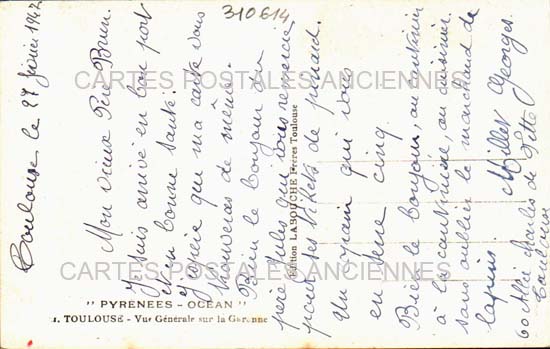 310614
Toulouse le 27 février 1942
Mon vieux Père Brun.
Je suis arrivé en bon port
et en bonne santé.
J'espère que ma carte vous
trouveras de même.
Bien le Bonjour du
père Jules qui vous remercie
pour ses tickets de pinard.
Un qui vous
en serre cinq.
Bien le bonjour, au cantinier
à la cantinière, au cuisinier
sans oublier le marchand de
lapins. Millet Georges.
60 Allée Charles de Fitte
Toulouse
Edition LABOUCHE Frères Toulouse
CARTES POSTALES ANCIENNES
CARTES POSTALES ANCIENNES
" PYRÉNÉES - OCÉAN "
1. TOULOUSE - Vue Générale sur la Garonne